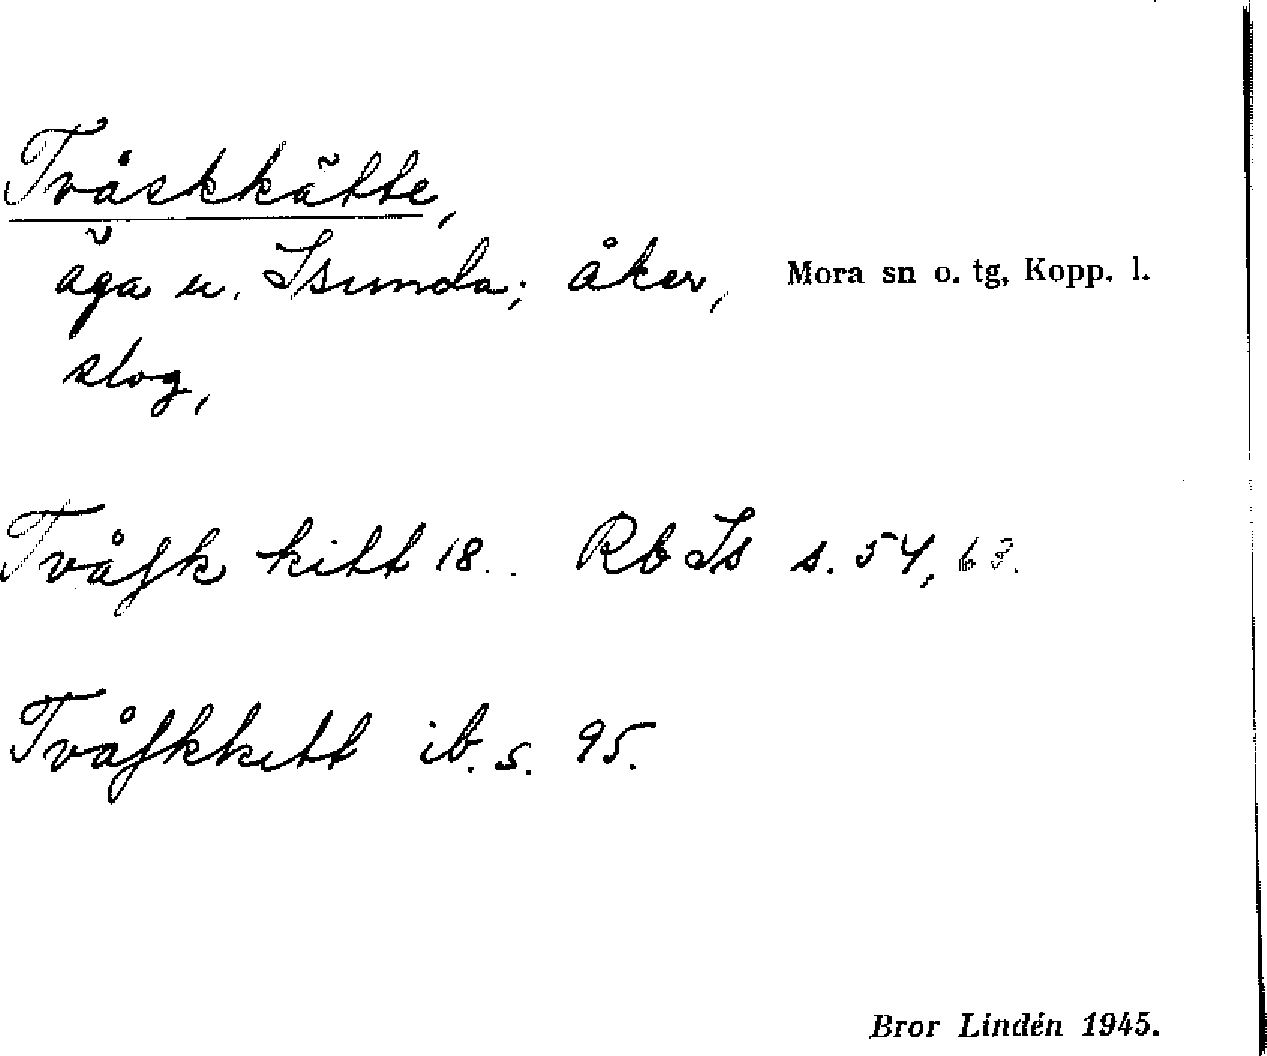 Tvåskkätte,
äga u. Isunda; åker, Mora sn o. tg, Kopp. l.
slog,
Tvåſk kitt 18.. Rb Is s. 54, 63.
Tvåſkkitt ib. s. 95.
Bror Lindén 1945.